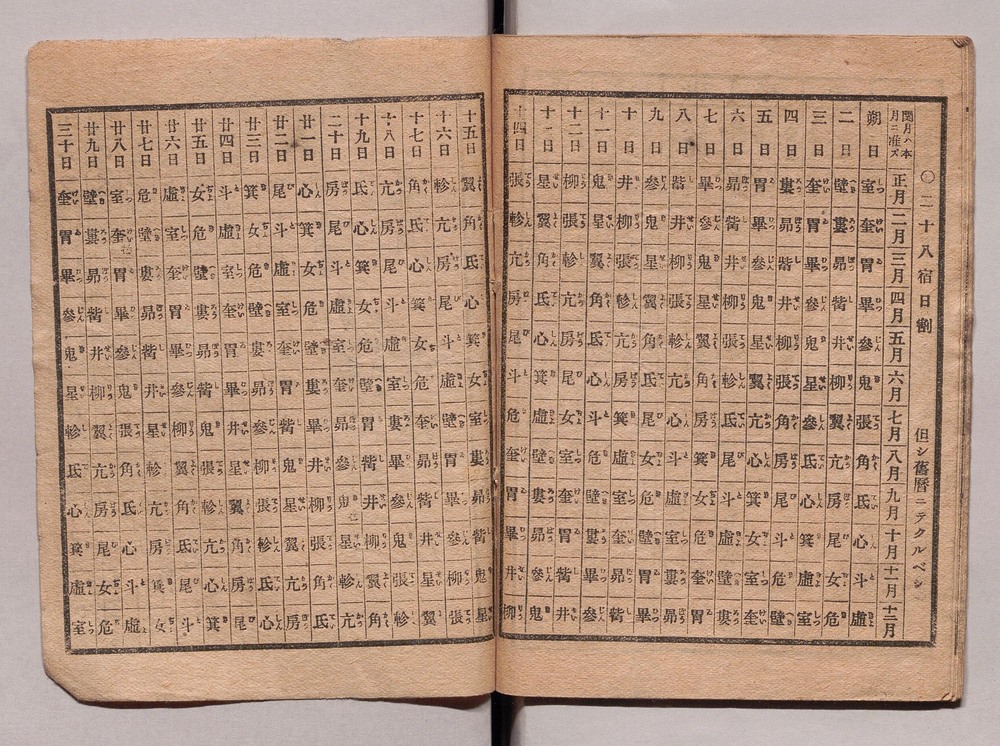 〇二十八宿日割 但シ舊曆ニテクルベシ
閏月ハ本月ニ准ズ 正月 二月 三月 四月 五月 六月 七月 八月 九月 十月 十一月 十二月
朔日 室 奎 胃 畢 參 鬼 張 角 氐 心 斗 虛
二日 壁 婁 昴 觜 井 柳 翼 亢 房 尾 女 危
三日 奎 胃 畢 參 鬼 星 軫 氐 心 箕 虛 室
四日 婁 昴 觜 井 柳 張 角 房 尾 斗 危 壁
五日 胃 畢 參 鬼 星 翼 亢 心 箕 女 室 奎
六日 昴 觜 井 柳 張 軫 氐 尾 斗 虛 壁 婁
七日 畢 參 鬼 星 翼 角 房 箕 女 危 奎 胃
八日 觜 井 柳 張 軫 亢 心 斗 虛 室 婁 昴
九日 參 鬼 星 翼 角 氐 尾 女 危 壁 胃 畢
十日 井 柳 張 軫 亢 房 箕 虛 室 奎 昴 觜
十一日 鬼 星 翼 角 氐 心 斗 危 壁 婁 畢 參
十二日 柳 張 軫 亢 房 尾 女 室 奎 胃 觜 井
十三日 星 翼 角 氐 心 箕 虛 壁 婁 昴 參 鬼
十四日 張 軫 亢 房 尾 斗 危 奎 胃 畢 井 柳
十五日 翼 角 氐 心 箕 女 室 婁 昴 觜 鬼 星
十六日 軫 亢 房 尾 斗 虛 壁 胃 畢 參 柳 張
十七日 角 氐 心 箕 女 危 奎 昴 觜 井 星 翼
十八日 亢 房 尾 斗 虛 室 婁 畢 參 鬼 張 軫
十九日 氐 心 箕 女 危 壁 胃 觜 井 柳 翼 角
二十日 房 尾 斗 虛 室 奎 昴 參 鬼 星 軫 亢
廿一日 心 箕 女 危 壁 婁 畢 井 柳 張 角 氐
廿二日 尾 斗 虛 室 奎 胃 觜 鬼 星 翼 亢 房
廿三日 箕 女 危 壁 婁 昴 參 柳 張 軫 氐 心
廿四日 斗 虛 室 奎 胃 畢 井 星 翼 角 房 尾
廿五日 女 危 壁 婁 昴 觜 鬼 張 軫 亢 心 箕
廿六日 虛 室 奎 胃 畢 參 柳 翼 角 氐 尾 斗
廿七日 危 壁 婁 昴 觜 井 星 軫 亢 房 箕 女
廿八日 室 奎 胃 畢 參 鬼 張 角 氐 心 斗 虛
廿九日 壁 婁 昴 觜 井 柳 翼 亢 房 尾 女 危
三十日 奎 胃 畢 參 鬼 星 軫 氐 心 箕 虛 室